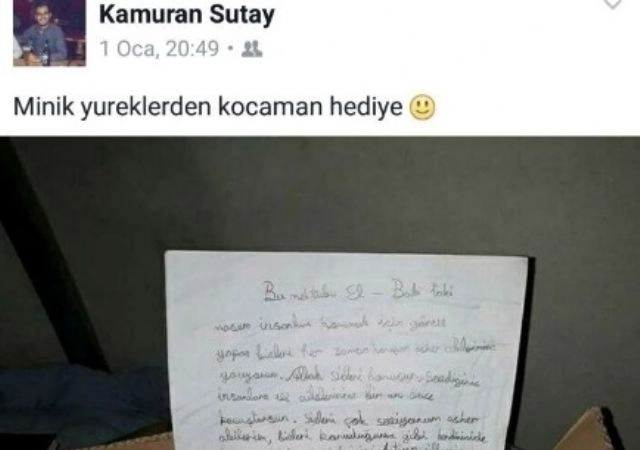 Kamuran Sutay
1 Oca, 20:49
Minik yureklerden kocaman hediye
Bu mektubu El - Bab'taki
masum insanları korumak için görev
yapan bizleri her zaman koruyan asker abilerimize
yazıyorum. Allah sizleri korusun, sevdiğiniz
insanlara ve ailelerinize bir an önce
kavuştursun. Sizleri çok seviyorum asker
abilerim, bizleri koruduğunuz gibi kendinizide